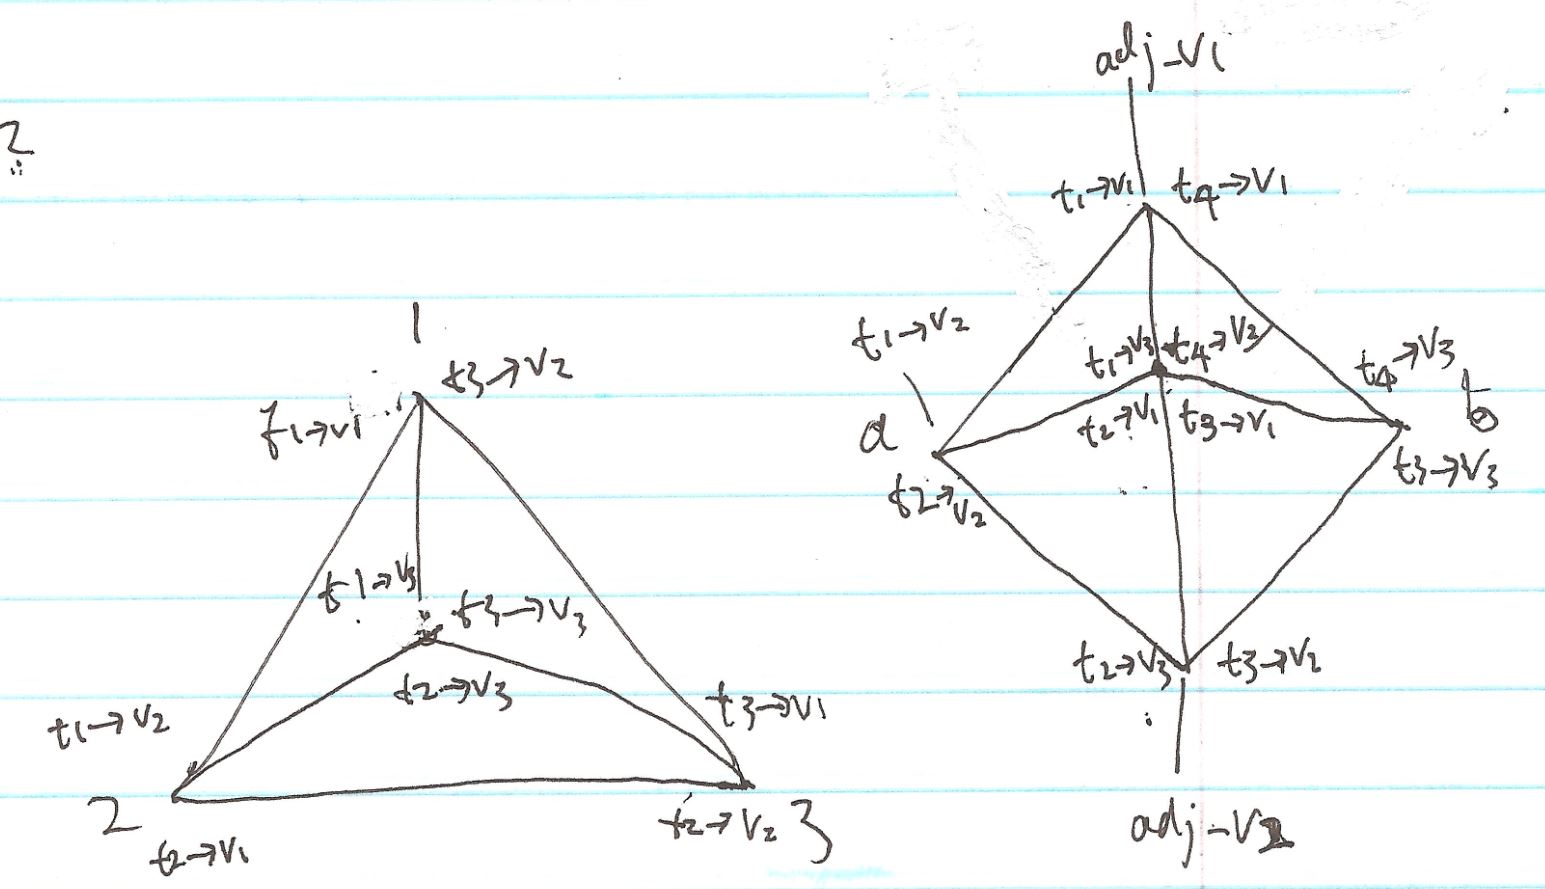 2
1
t3→v2
f1→v1
t1→v3
t3→v3
t2→v3
t1→v2
t3→v1
2
t2→v1
t2→v2
3
adj-v1
t1→v1
t4→v1
t1→v2
t1→v3
t4→v2
t4→v3
a
b
t2→v1
t3→v1
t2→v2
t3→v3
t2→v3
t3→v2
adj-v2